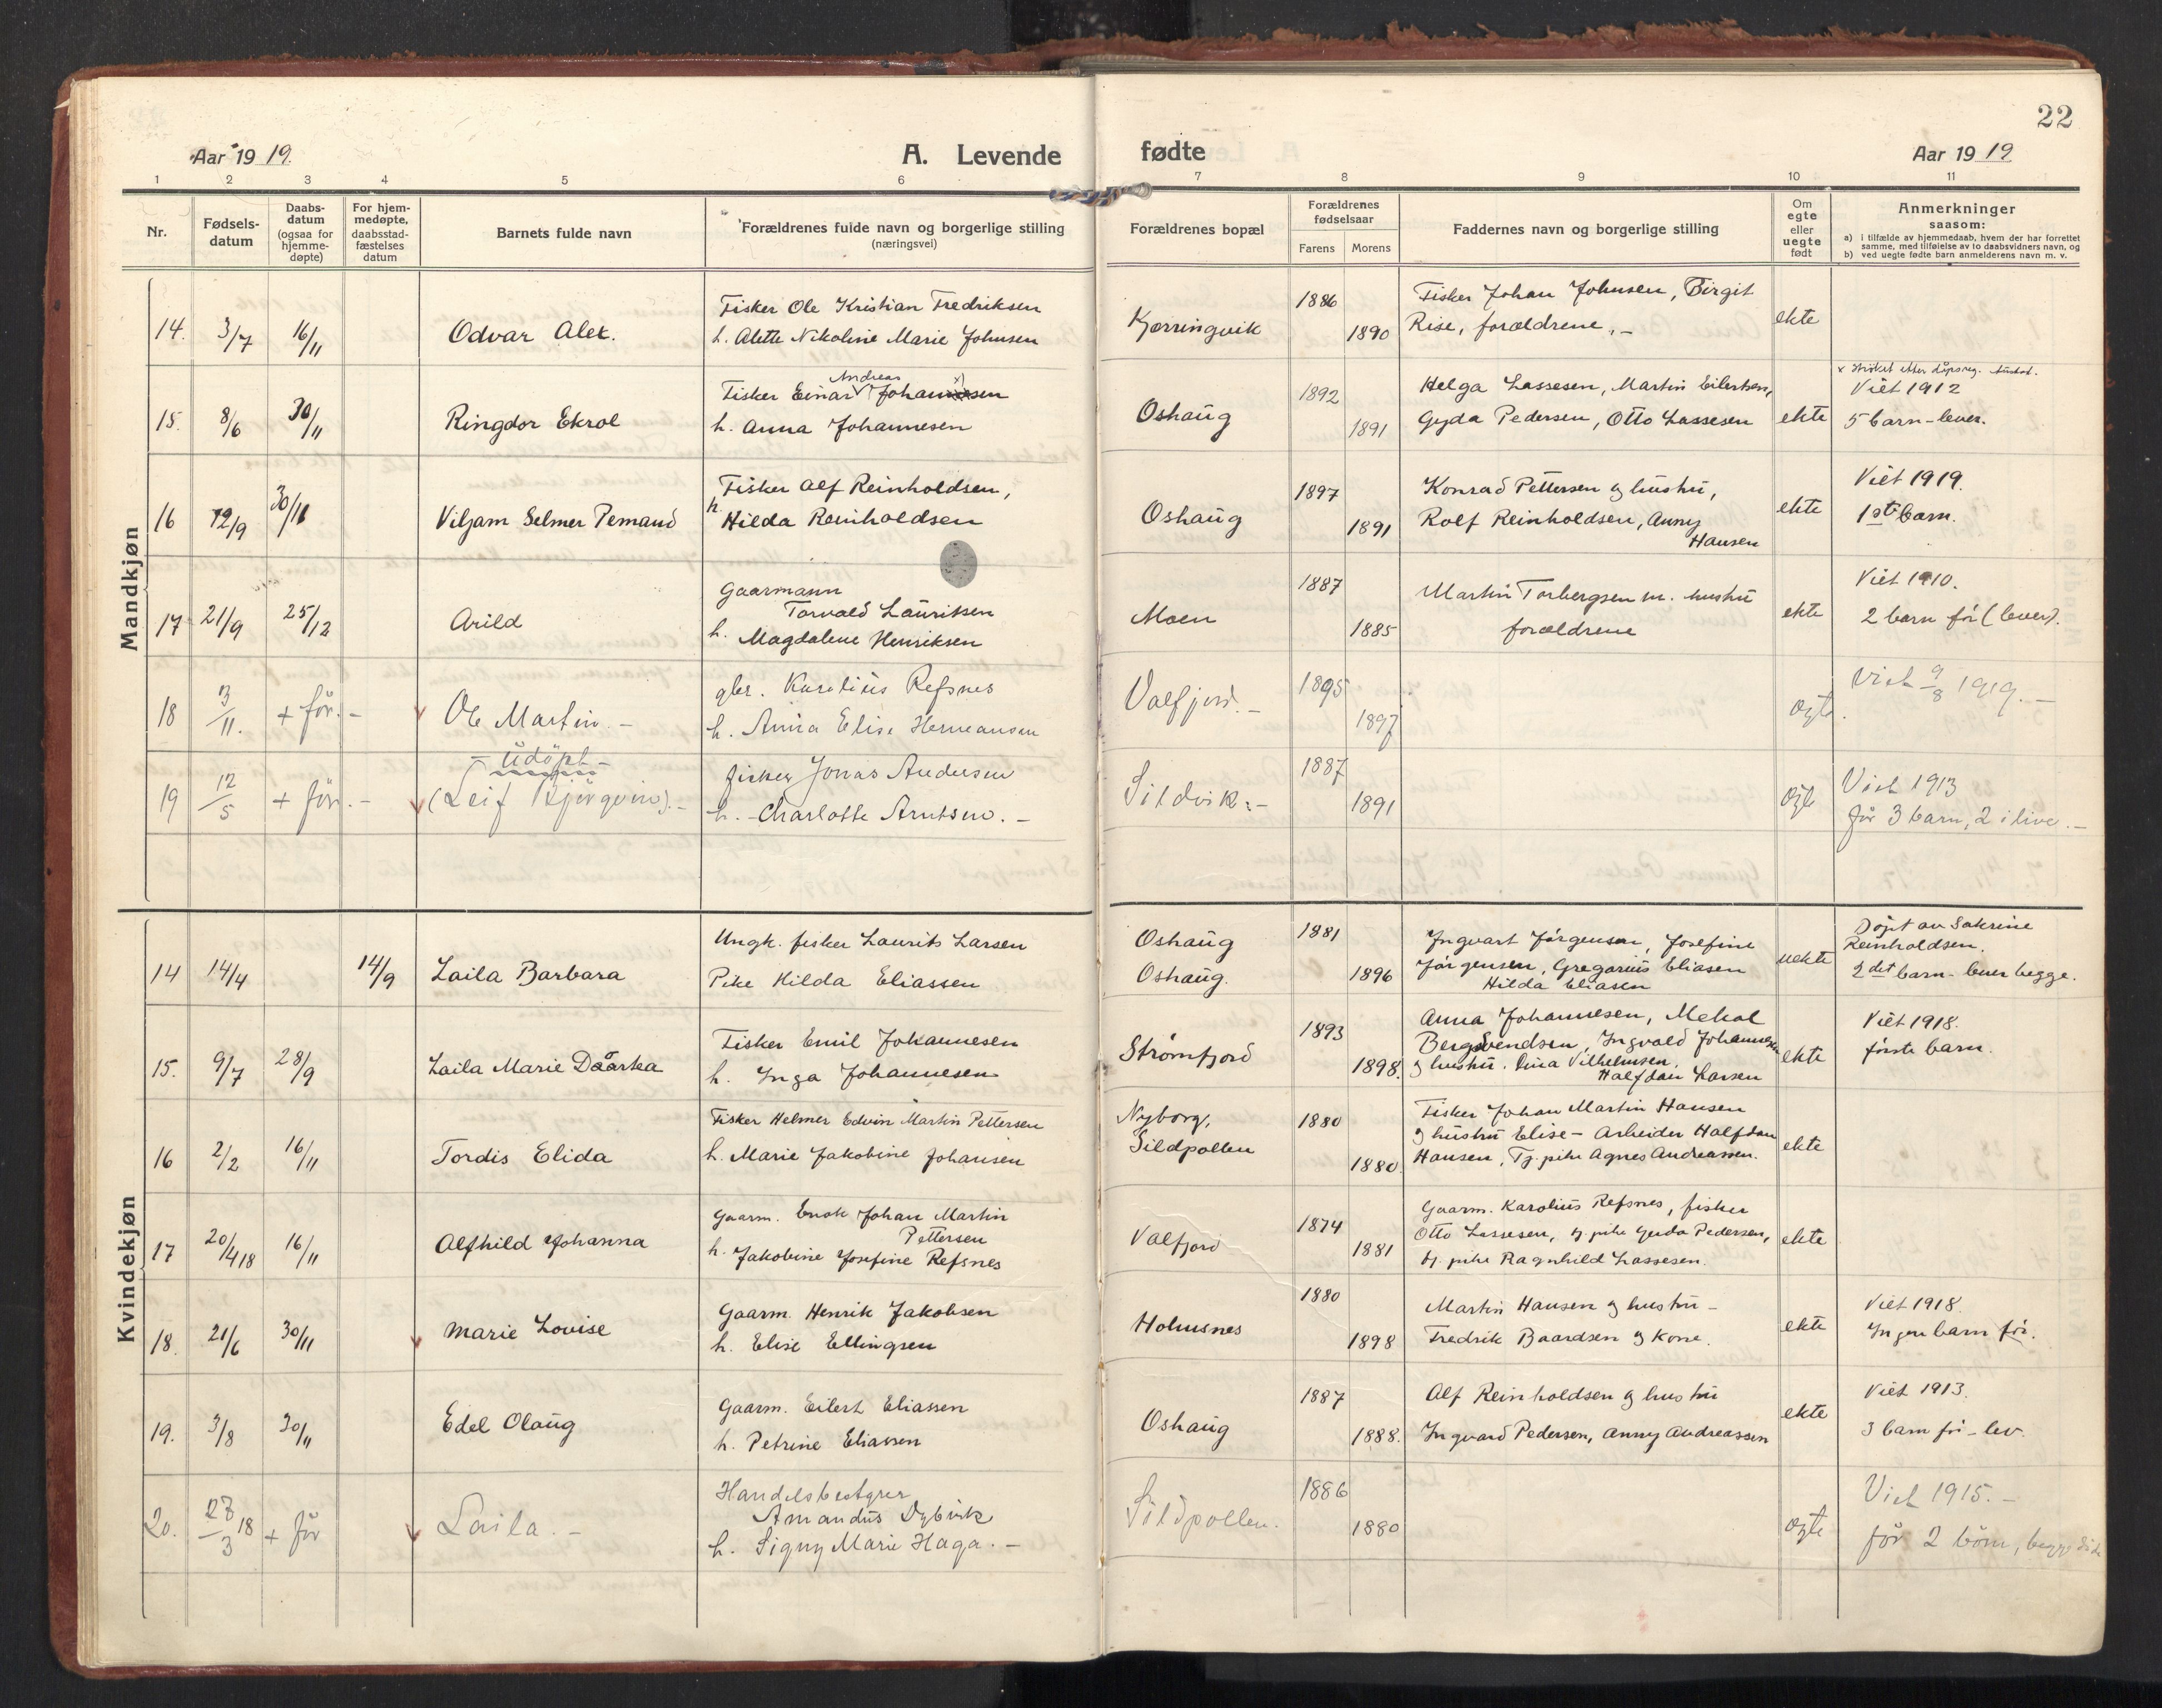 22
Aar 1919.
A. Levende
fødte
Aar 1919
1 2 3 4 5 6 7 8 9 10 11
Nr.
Fødsels-
datum
Daabs-
datum
(ogsaa for
hjemme-
døpte)
For hjem-
medøpte,
daabsstad-
fæstelses
datum
Barnets fulde navn
Forældrenes fulde navn og borgerlige stilling
(næringsvei)
Forældrenes bopæl
Forældrenes
fødselsaar
Farens Morens
Faddernes navn og borgerlige stilling
Om
egte
eller
uegte
født
Anmerkninger
saasom:
a) i tilfælde av hjemmedaab, hvem der har forrettet
samme, med tilføielse av to daabsvidners navn, og
b) ved uegte fødte barn anmelderens navn m. v.
Mandkjøn
14. 3/7 16/11
Odvar Alex.
Fisker Ole Kristian Fredriksen
h. Alette Nikoline Marie Johnsen
Kjørringvik
1886
1890
Fisker Johan Johnsen, Birgit
Rise, forældrene, –
ekte
15. 8/6 30/11
Ringdor Ekrol
Andreas x)
Fisker Einar Johannesen
h. Anna Johannesen
Oshaug
1892
1891
Helga Lassesen, Martin Eilertsen,
Gyda Pedersen, Otto Lassesen
ekte
Viet 1912
5 barn – lever.
16 12/9 30/11
Viljam Selmer Pemand
Fisker Alf Reinholdsen,
h. Hilda Reinholdsen
Oshaug
1897
1891
Konrad Pettersen og hustru,
Rolf Reinholdsen, Anny
Hansen
ekte
Viet 1919.
1ste barn.
17 21/9 25/12
Arild
Gaarmann
Torvald Lauritsen
h. Magdalene Henriksen
Moen
1887
1885
Martin Torbergsen m. hustru
forældrene
ekte
Viet 1910.
2 barn før (lever).
18 3/11. + før. –
Ole Martin. –
gbr. Karelius Refsnes
h. Anna Elise Hermansen
Valfjord. –
1895
1897
egte.
Viet 9/8 1919. –
19 12/5 + før. –
– udøpt –
(Leif Bjørgvin). –
fisker Jonas Andersen
h. Charlotte Arntsen. –
Sildvik. –
1887
1891
egte
Viet 1913
før 3 barn, 2 i live. –
Kvindekjøn
14 14/4 14/9
Laila Barbara
Ungk. fisker Laurits Larsen
Pike Hilda Eliassen
Oshaug
Oshaug.
1881
1896
Ingvart Jørgensen, Josefine
Jørgensen, Gregorius Eliasen
Hilda Eliasen
uekte
Døpt av Sakrine
Reinholdsen.
2det barn – lever begge.
15. 9/7 28/9
Laila Marie Daarka
Fisker Emil Johannesen
h. Inga Johannesen
Strømfjord
1893
1898.
Anna Johannesen, Mekal
Bergsvendsen, Ingvald Johannesen
og hustru. Lina Vilhelmsen,
Halfdan Larsen
ekte
Viet 1918.
første barn.
16 2/2 16/11
Tordis Elida
Fisker Helmer Edvin Martin Pettersen
h. Marie Jakobine Johansen
Nyborg,
Sildpollen
1880
1880.
Fisker Johan Martin Hansen
og hustru Elise – Arbeider Halfdan
Hansen, Tj. pike Agnes Andreassen.
ekte
17 20/4 18 16/11
Alfhild Johanna
Gaarm. Enok Johan Martin
Pettersen
h. Jakobine Josefine Refsnes
Valfjord
1874
1881
Gaarm. Karolius Refsnes, fisker
Otto Lassesen, tj. pike Gyda Pedersen,
tj. pike Ragnhild Lassesen.
ekte
18. 21/6 30/11
Marie Lovise
Gaarm. Henrik Jakobsen
h. Elise Ellingsen
Holmsnes
1880
1898
Martin Hansen og hustru –
Fredrik Baardsen og Kone.
ekte
Viet 1918.
Ingen barn før.
19. 3/8 30/11
Edel Olaug
Gaarm. Eilert Eliassen
h. Petrine Eliassen
Oshaug
1887
1888.
Alf Reinholdsen og hustru
Ingvard Pedersen, Anny Andreassen
ekte
Viet 1913.
3 barn før – lev.
20. 27/3 18 + før
Laila. –
Handelsbestyrer
Amandus Dybvik
h. Signy Marie Haga. –
Sildpollen.
1886
1880
egte
Viet 1915. –
før 2 børn, begge døde